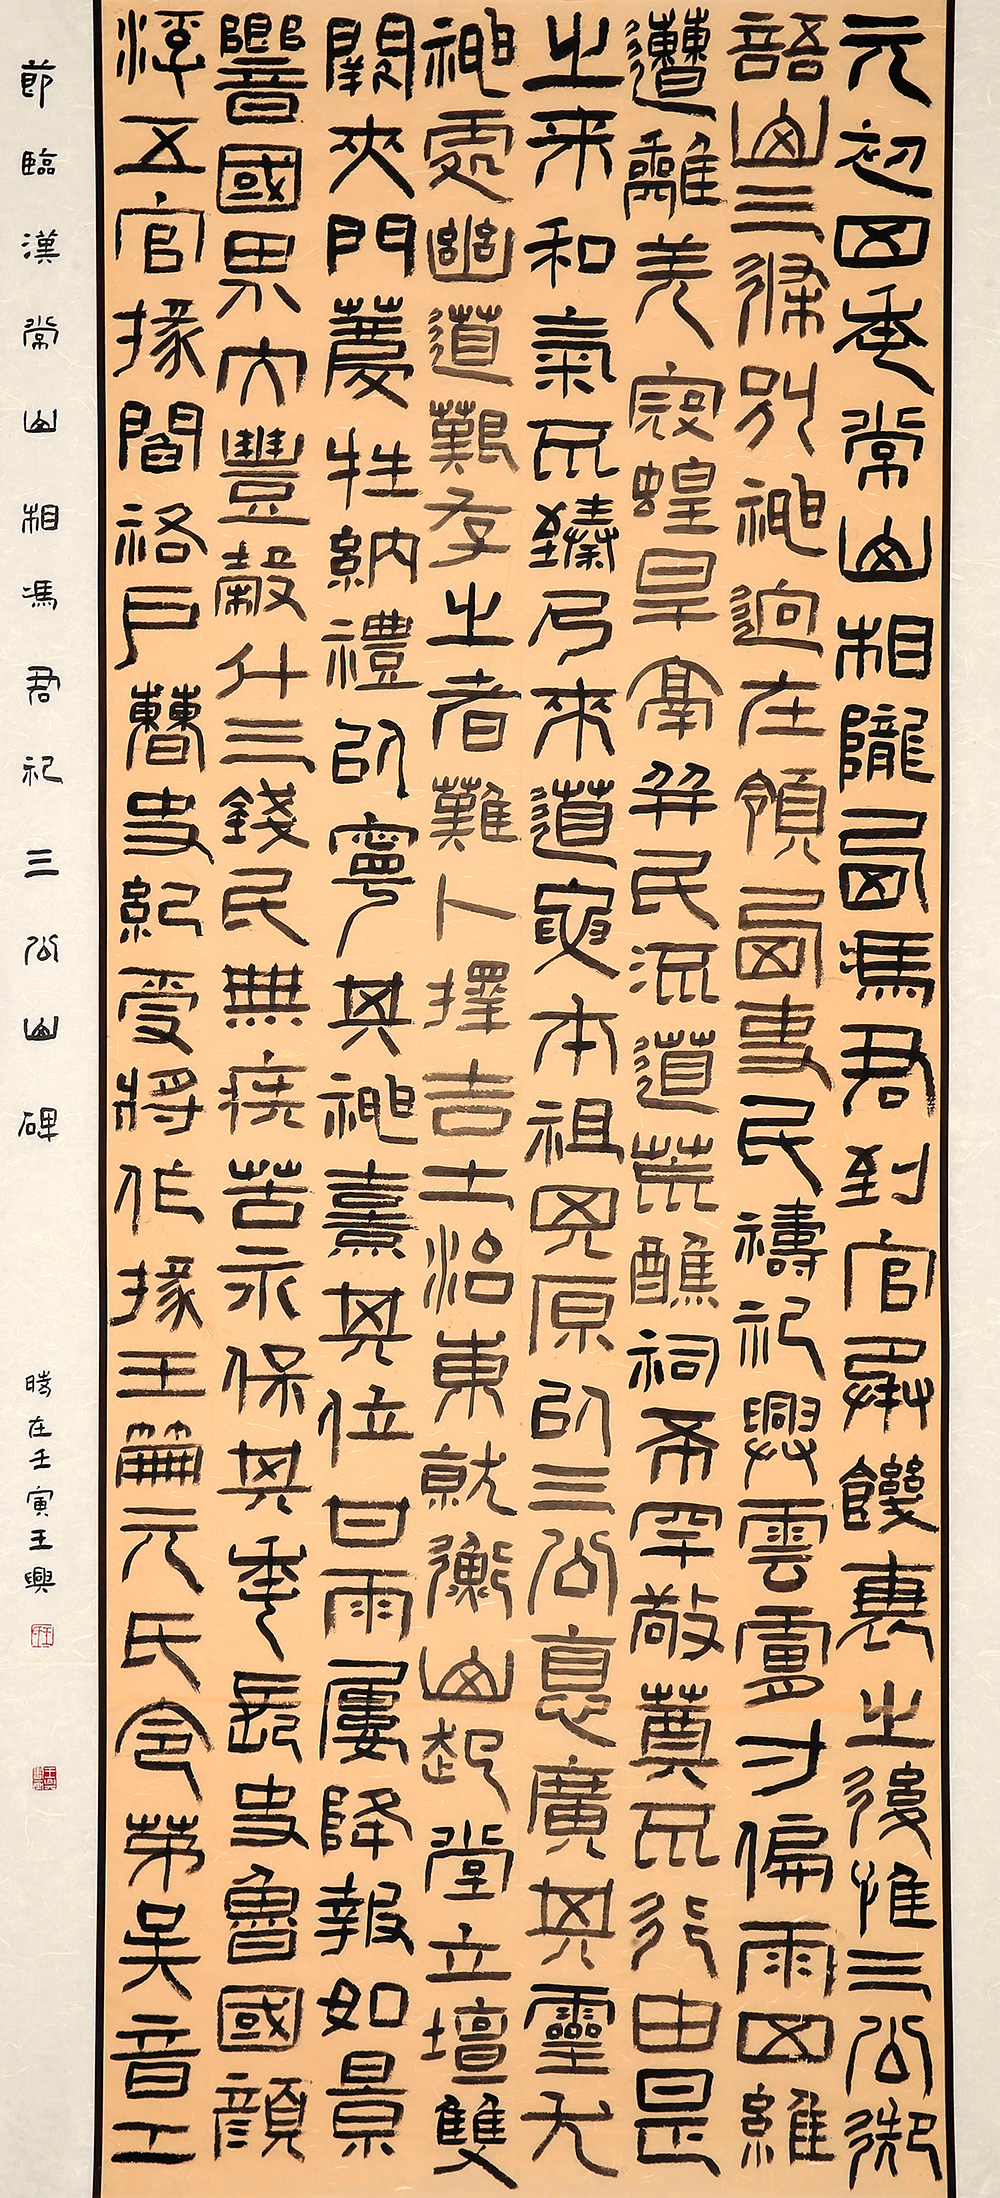 元初四年常山相隴西馮君到官承饑衰之後惟三公御
語山三條別神迥在領西吏民禱祀興雲膚寸偏雨四維
遭離羌寇蝗旱鬲并民流道荒醮祠希罕敬奠不行由是
之來和氣不臻乃來道要本祖其原以三公惪廣其靈尤
神處幽道艱存之者難卜擇吉土治東就衡山起堂立壇雙
闕夾門薦牲納禮以寧其神熹其位甘雨屢降報如景
響國界大豐穀斗三錢民無疾苦永保其年長史魯國顏
浮五官掾閻祐戶曹史紀受將作掾王筩元氏令茅吳音工
節臨漢常山相馮君祀三公山碑
時在壬寅王興